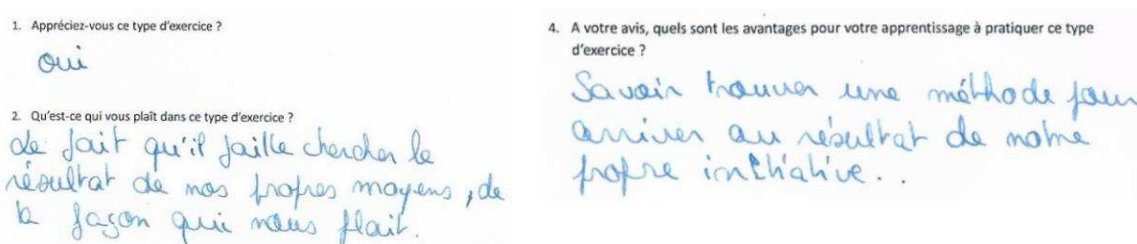 1. Appréciez-vous ce type d'exercice ?
oui
2. Qu'est-ce qui vous plaît dans ce type d'exercice ?
de fait qu'il faille chercher le
résultat de nos propres moyens, de
la façon qui nous plait.
4. A votre avis, quels sont les avantages pour votre apprentissage à pratiquer ce type
d'exercice ?
Savoir trouver une méthode pour
arriver au résultat de notre
propre initiative..